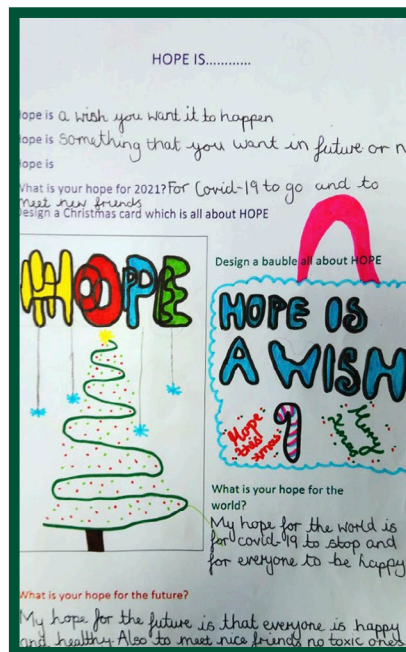 HOPE IS............
ope is a wish you want it to happen
ope is something that you want in future or n
ope is
What is your hope for 2021? For Covid-19 to go and to
meet new friends
Design a Christmas card which is all about HOPE
HOPE
Design a bauble all about HOPE
HOPE IS
A WISH
Hope
this
xmas
Merry
Xmas
What is your hope for the
world?
My hope for the world is
for covid-19 to stop and
for everyone to be happy
What is your hope for the future?
My hope for the future is that everyone is happy
and healthy Also to meet nice friends no toxic ones